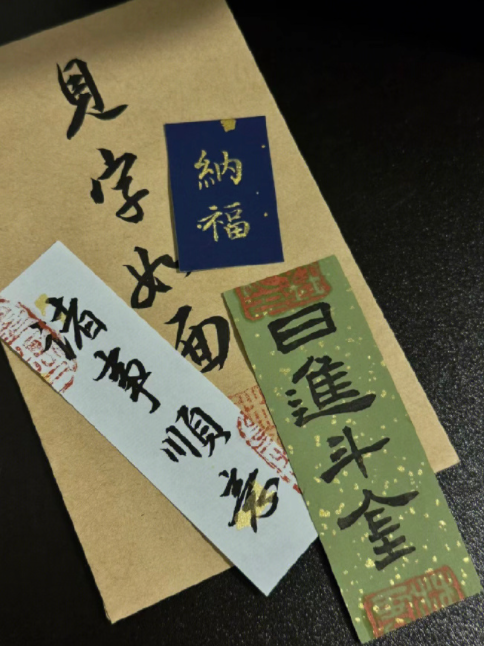 見字如面
納福
諸事順意
日進斗金